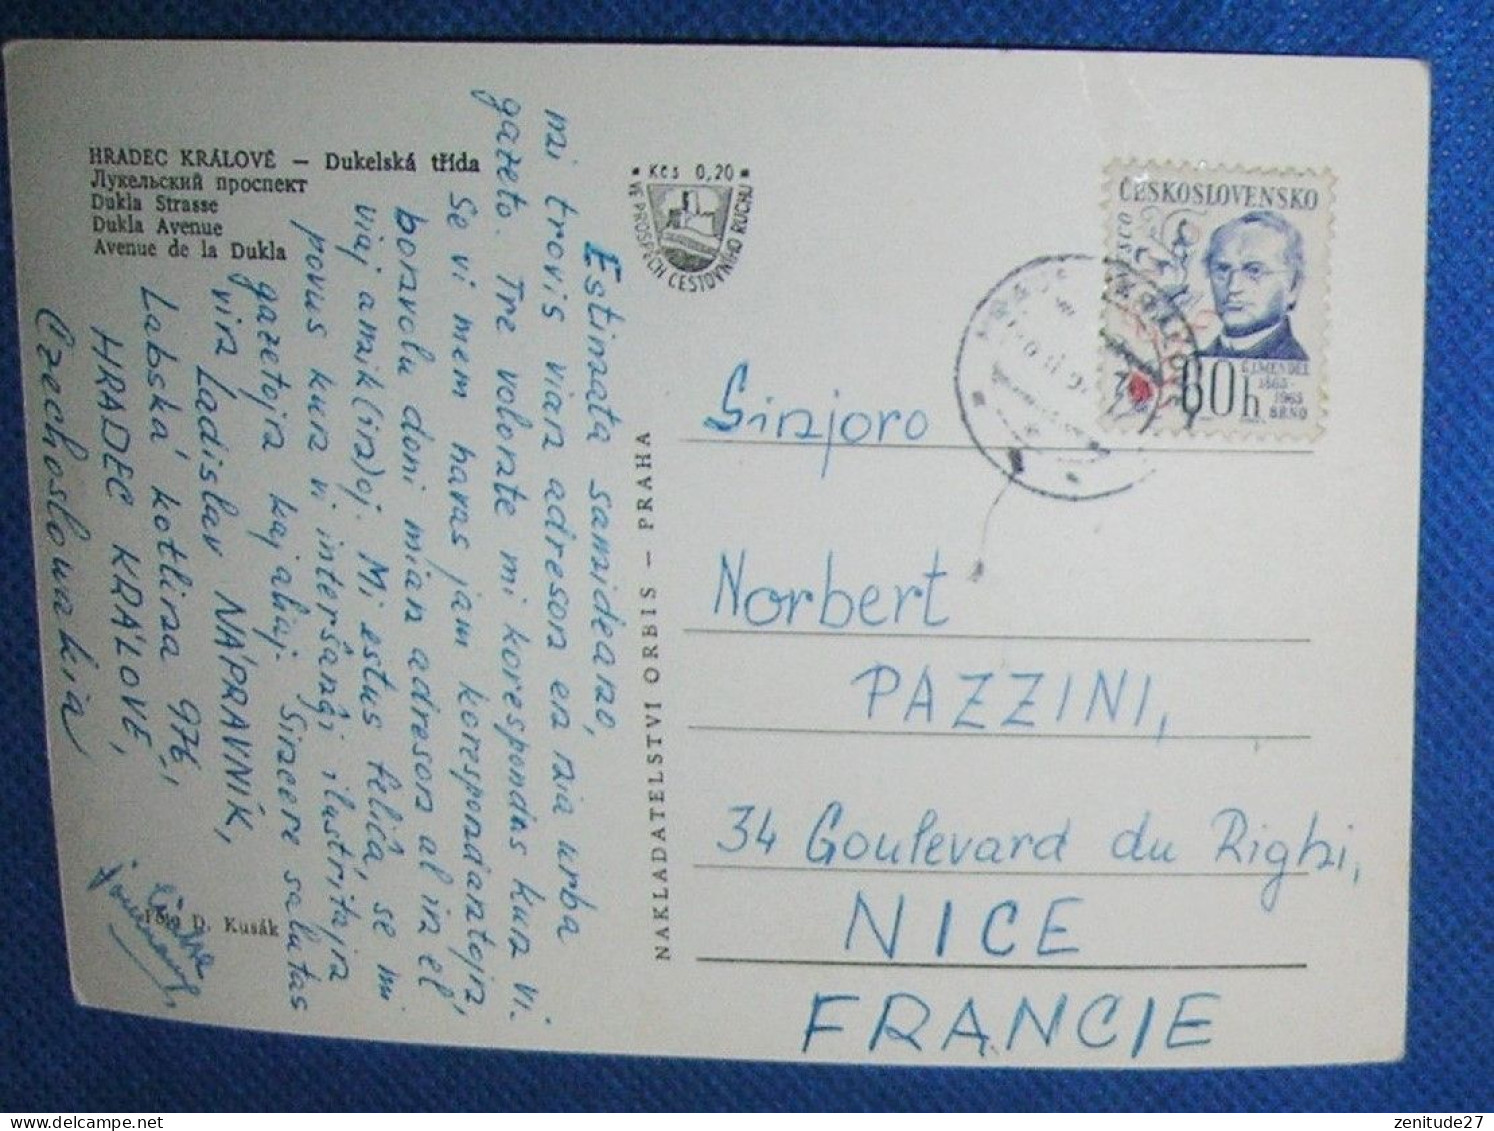 HRADEC KRÁLOVÉ — Dukelská třída
Лукельский проспект
Dukla Strasse
Dukla Avenue
Avenue de la Dukla
Kčs 0,20
VE PROSPĚCH CESTOVNÍHO RUCHU
Estimata samideano,
mi trovis vian adreson en nia urba
gazeto. Tre volonte mi korespondas kun vi.
Se vi mem havas jam korespondantojn,
bonvolu doni mian adreson al in el
viaj amik(in)oj. Mi estus feliĉa, se mi
povus kun vi interŝanĝi ilustritajn
gazetojn kaj aliaj. Sincere salutas
vin Ladislav NÁPRAVNÍK,
Labská kotlina 976,
HRADEC KRÁLOVÉ,
Czechoslowakia
Foto D. Kusák
NAKLADATELSTVÍ ORBIS — PRAHA
ČESKOSLOVENSKO
UNESCO
G.J.MENDEL
1865-
1965
BRNO
60h
Sinjoro
Norbert
PAZZINI,
34 Goulevard du Righi,
NICE
FRANCIE
zenitude27